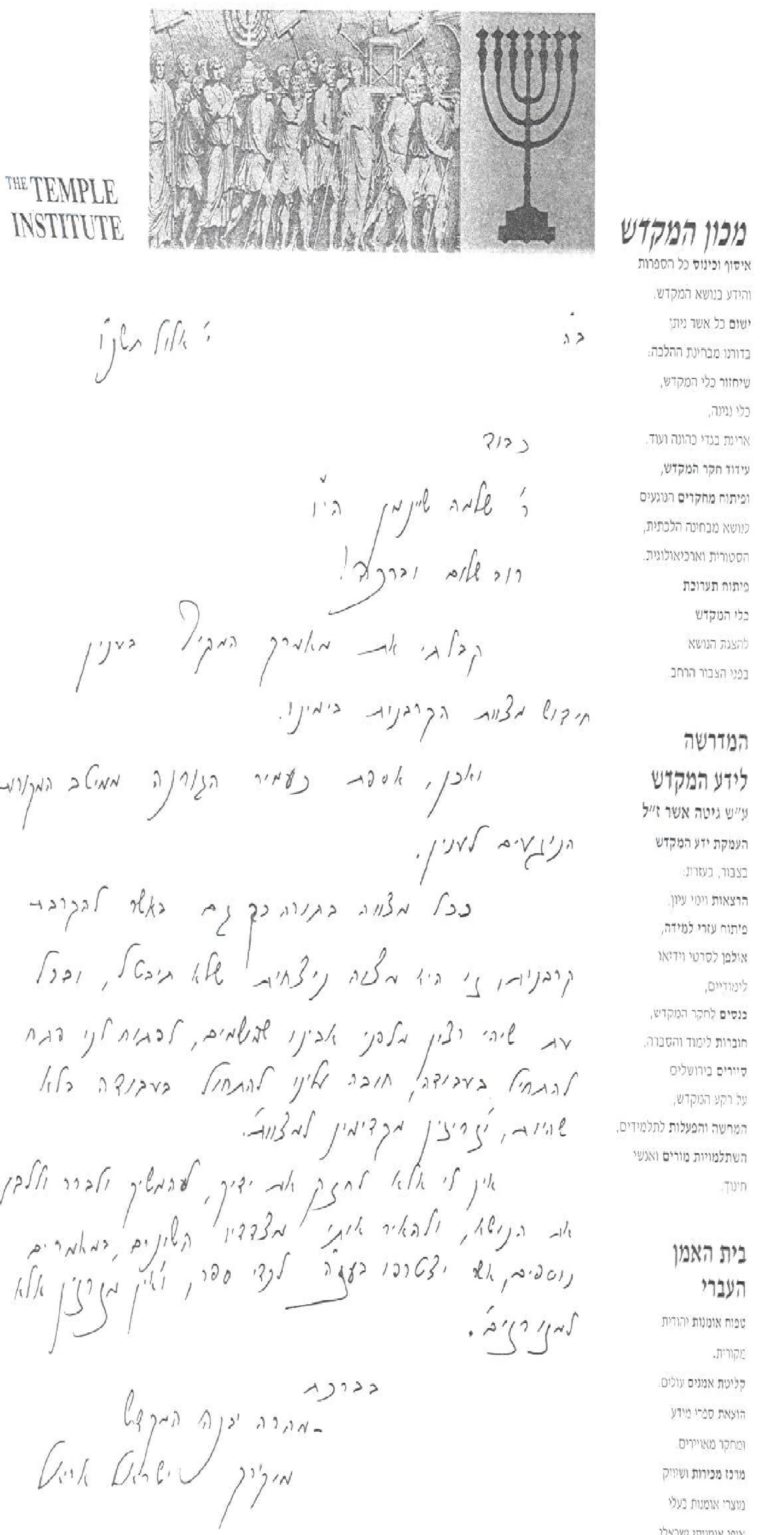 THE TEMPLE
INSTITUTE
מכון המקדש
איסוף וכינוס כל הספרות
והידע בנושא המקדש.
ישום כל אשר ניתן
בדורנו מבחינת ההלכה:
שיחזור כלי המקדש,
כלי נגינה,
אריגת בגדי כהונה ועוד.
עידוד חקר המקדש,
ופיתוח מחקרים הנוגעים
לנושא מבחינה הלכתית,
הסטורית וארכיאולוגית.
פיתוח תערוכת
כלי המקדש
להצגת הנושא
בפני הצבור הרחב
המדרשה
לידע המקדש
ע״ש גיטה אשר ז״ל
העמקת ידע המקדש
בצבור, בעזרת:
הרצאות וימי עיון.
פיתוח עזרי למידה,
אולפן לסרטי וידיאו
לימודיים,
כנסים לחקר המקדש,
חוברות לימוד והסברה.
סיורים בירושלים
על רקע המקדש,
המחשה והפעלות לתלמידים,
השתלמויות מורים ואנשי
חינוך.
בית האמן
העברי
טפוח אומנות יהודית
מקורית.
קליטת אמנים עולים.
הוצאת ספרי מידע
ומחקר מאויירים.
מרכז מכירות ושיווק
מוצרי אומנות בעלי
ב"ה
י' אלול תשנ"ו
כבוד
ר' שלמה שיינמן הי"ו
רוב שלום וברכה!
קבלתי את מאמרך המקיף בענין
חידוש מצוות הקרבנות בימינו.
ואכן, אספת כעמיר הגורנה ממיטב המקורות
הנוגעים לענין.
ככל מצווה בתורה כך גם באשר להקרבת
קרבנות, זו היא מצוה ניצחית שלא תיבטל, ובכל
עת שיהי רצון מלפני אבינו שבשמים, לפתוח לנו פתח
להתחיל בעבודה, חובה עלינו להתחיל בעבודה בלא
שהיות, 'זריזין מקדימין למצוות'.
אין לי אלא לחזק את ידיך, להמשיך ולברר וללבן
את הנושא, ולהאיר אותו מצדדיו השונים, במאמרים
נוספים, אשר יצטרפו בעז"ה לכדי ספר, ו'אין מזרזין אלא
למזורזים'.
בברכת
מהרה יבנה המקדש
מוקירך ישראל אריאל